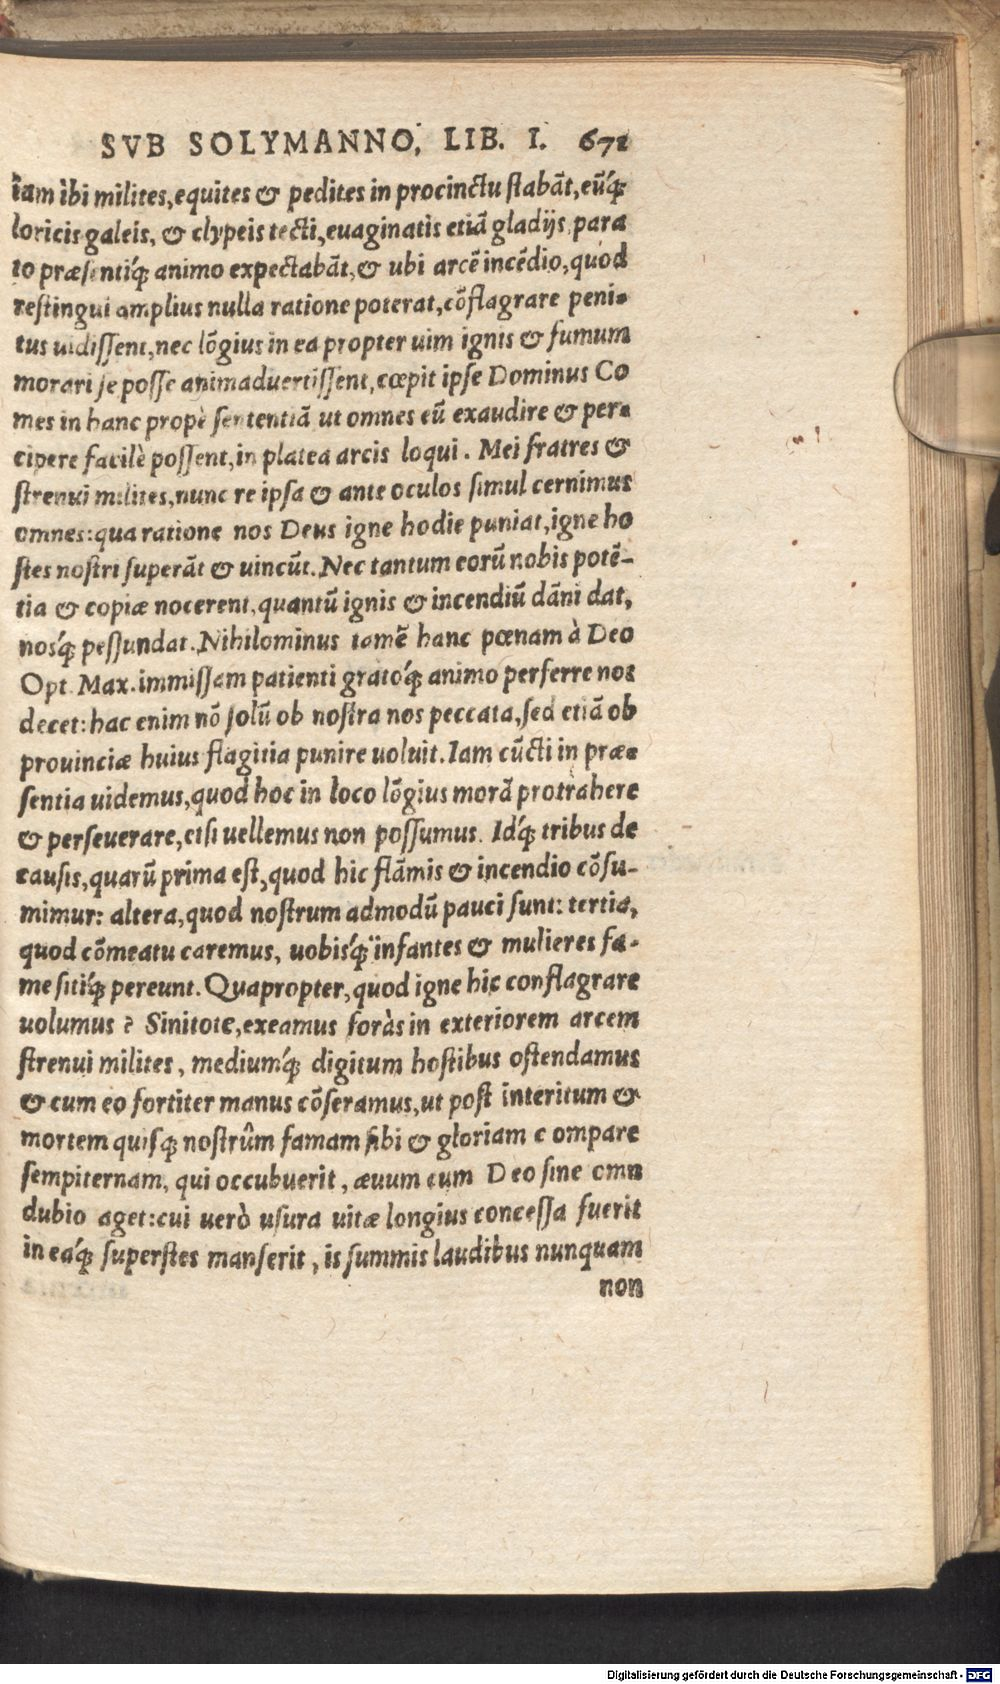 SVB SOLYMANNO, LIB. I. 671
iam ibi milites, equites & pedites in procinctu stabāt, eūq́;
loricis galeis, & clypeis tecti, euaginatis etiā gladijs para
to præsentiq́; animo expectabāt, & ubi arcē incēdio, quod
restingui amplius nulla ratione poterat, cōflagrare peni-
tus uidissent, nec lōgius in ea propter uim ignis & fumum
morari se posse animaduertissent, cœpit ipse Dominus Co
mes in hanc propè sententiā ut omnes eū exaudire & per-
cipere facilè possent, in platea arcis loqui. Mei fratres &
strenui milites, nunc re ipsa & ante oculos simul cernimus
omnes: qua ratione nos Deus igne hodie puniat, igne ho
stes nostri superāt & uincūt. Nec tantum eorū nobis potē-
tia & copiæ nocerent, quantū ignis & incendiū dāni dat,
nosq́; pessundat. Nihilominus tamē hanc pœnam à Deo
Opt. Max. immissam patienti gratoq́; animo perferre nos
decet: hac enim nō solū ob nostra nos peccata, sed etiā ob
prouinciæ huius flagitia punire uoluit. Iam cūcti in præ-
sentia uidemus, quod hoc in loco lōgius morā protrahere
& perseuerare, etsi uellemus non possumus. Idq́; tribus de
causis, quarū prima est, quod hic flāmis & incendio cōsu-
mimur: altera, quod nostrum admodū pauci sunt: tertia,
quod cōmeatu caremus, uobisq́; infantes & mulieres fa-
me sitiq́; pereunt. Quapropter, quod igne hic conflagrare
uolumus? Sinitote, exeamus foràs in exteriorem arcem
strenui milites, mediumq́; digitum hostibus ostendamus
& cum eo fortiter manus cōseramus, ut post interitum &
mortem quisq; nostrûm famam sibi & gloriam c ompare
sempiternam, qui occubuerit, æuum cum Deo sine omn
dubio aget: cui uerò usura uitæ longius concessa fuerit
in eaq́; superstes manserit, is summis laudibus nunquam
non
Digitalisierung gefördert durch die Deutsche Forschungsgemeinschaft - DFG